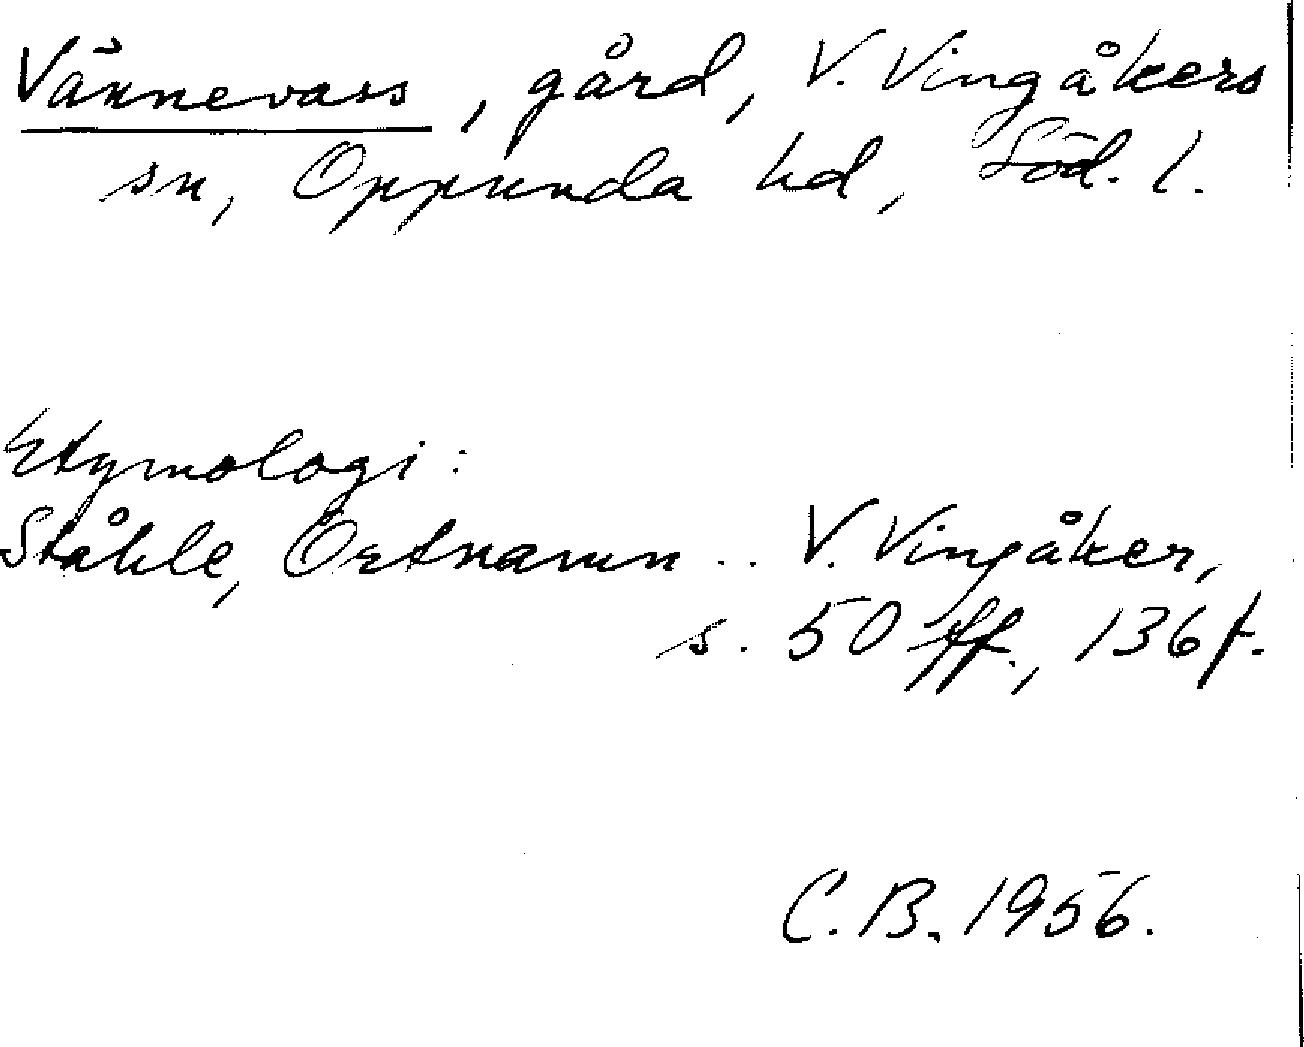 Vännevass, gård, V. Vingåkers
sn, Oppunda hd, Söd. l.
Etymologi:
Ståhle, Ortnamn .. V. Vingåker,
s. 50 ff., 136 f.
C. B. 1956.